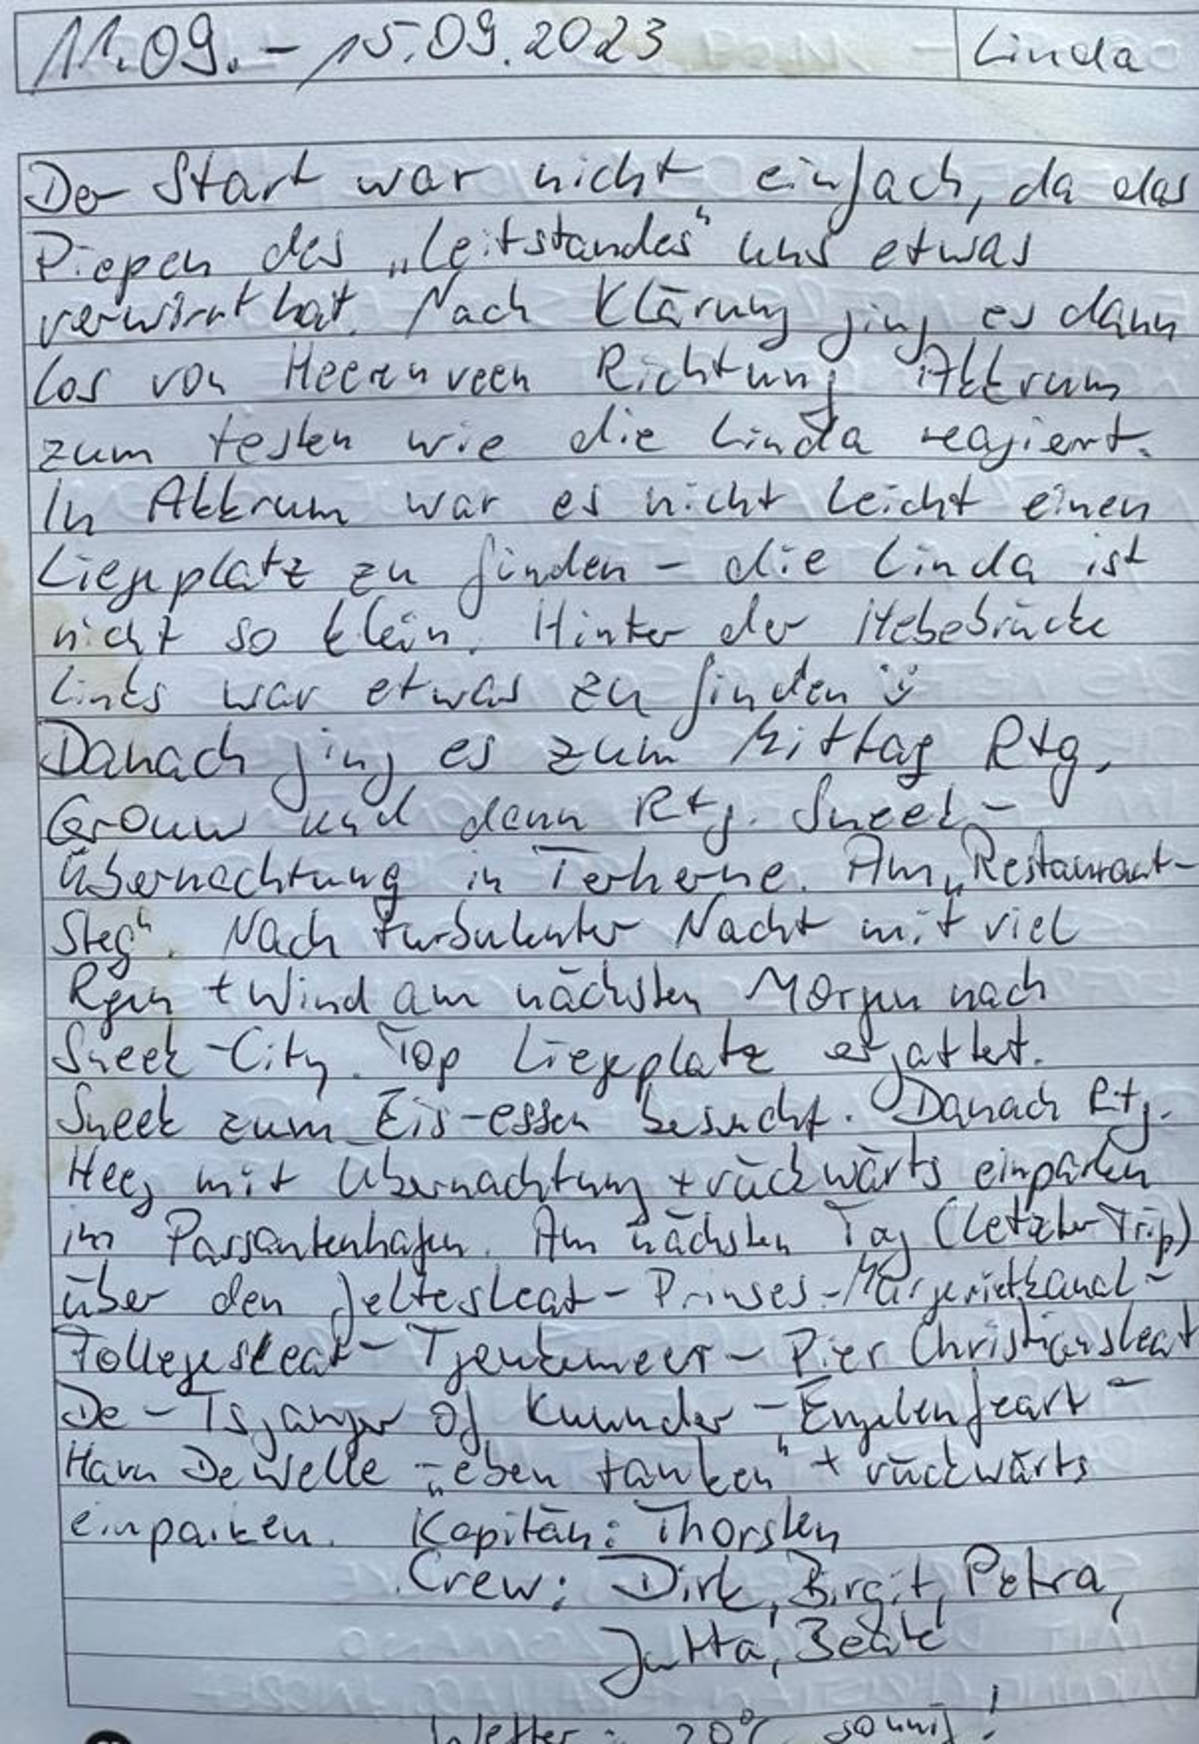 11.09. - 15.09.2023 Linda
Der Start war nicht einfach, da das
Piepen des „Leitstandes" uns etwas
verwirrt hat. Nach Klärung ging es dann
los von Heerenveen Richtung Akkrum
zum testen wie die Linda reagiert.
In Akkrum war es nicht leicht einen
Liegeplatz zu finden - die Linda ist
nicht so klein. Hinter der Hebebrücke
links war etwas zu finden ü
Danach ging es zum Mittag Rtg.
Grouw und dann Rtg. Sneek -
Übernachtung in Terherne. Am „Restaurant-
Steg". Nach turbulenter Nacht mit viel
Regen + Wind am nächsten Morgen nach
Sneek-City. Top Liegeplatz ergattert.
Sneek zum Eis-essen besucht. Danach Rtg.
Heeg mit Übernachtung + rückwärts einparken
im Passantenhafen. Am nächsten Tag (letzter Trip)
über den Jeltesleat - Prinses-Margrietkanal -
Follegasleat - Tjeukemeer - Pier Christiansleat
De - Tsjonger of Kuunder - Engelenfeart -
Havn De Welle - „eben tanken" + rückwärts
einparken. Kapitän: Thorsten
Crew: Dirk, Birgit, Petra,
Jutta, Beate
Wetter: 20°C sonnig!